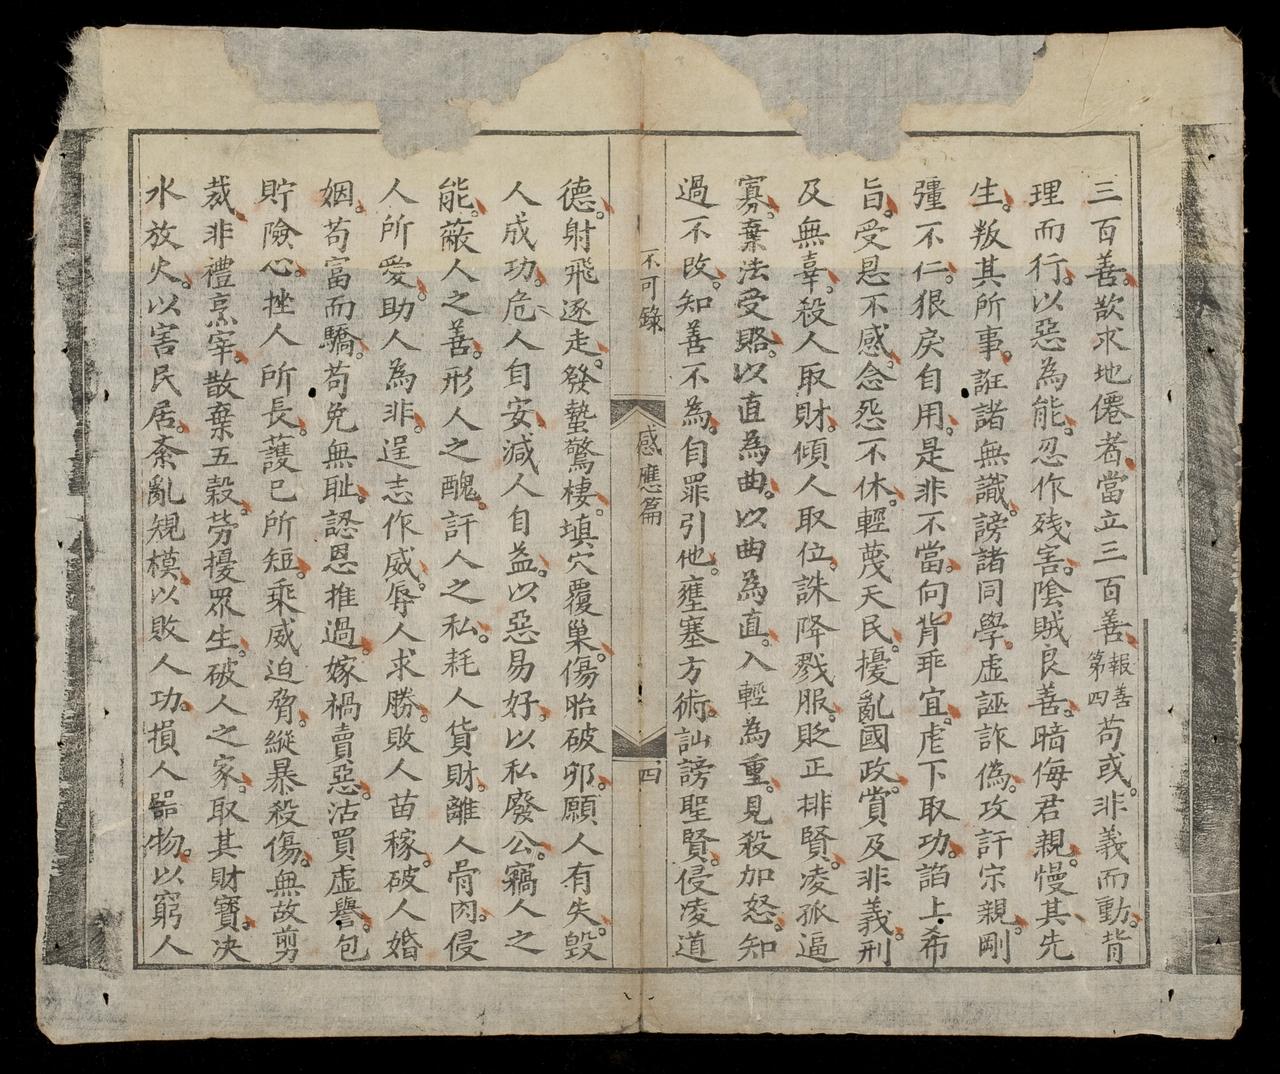 三百善。欲求地僊者當立三百善。報善第四苟或。非義而動。背
理而行。以惡為能。忍作殘害。陰賊良善。暗侮君親。慢其先
生。叛其所事。誑諸無識。謗諸同學。虛誣詐偽。攻訐宗親。剛
彊不仁。狠戾自用。是非不當。向背乖宜。虐下取功。諂上希
旨。受恩不感。念怨不休。輕蔑天民。擾亂國政。賞及非義。刑
及無辜。殺人取財。傾人取位。誅降戮服。貶正排賢。凌孤逼
寡。棄法受賂。以直為曲。以曲為直。入輕為重。見殺加怒。知
過不改。知善不為。自罪引他。壅塞方術。訕謗聖賢。侵凌道
不可錄 感應篇 四
德。射飛逐走。發蟄驚棲。填穴覆巢。傷胎破卵。願人有失。毀
人成功。危人自安。減人自益。以惡易好。以私廢公。竊人之
能。蔽人之善。形人之醜。訐人之私。耗人貨財。離人骨肉。侵
人所愛。助人為非。逞志作威。辱人求勝。敗人苗稼。破人婚
姻。苟富而驕。苟免無恥。認恩推過。嫁禍賣惡。沽買虛譽。包
貯險心。挫人所長。護已所短。乘威迫脅。縱暴殺傷。無故剪
裁。非禮烹宰。散棄五穀。勞擾眾生。破人之家。取其財寶。決
水放火。以害民居。紊亂規模。以敗人功。損人器物。以窮人